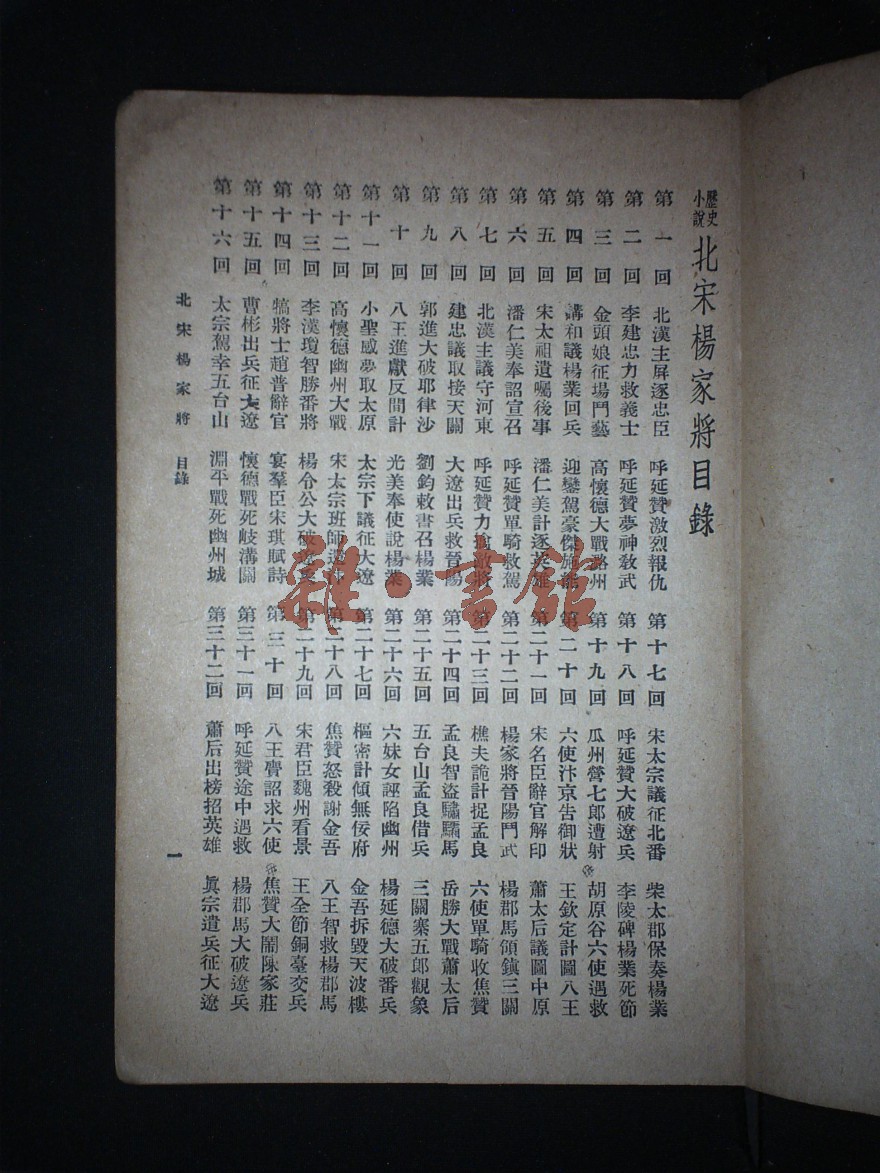 歷史小說 北宋楊家將目錄
第一回 北漢主屏逐忠臣 呼延贊激烈報仇
第二回 李建忠力救義士 呼延贊夢神教武
第三回 金頭娘征場鬥藝 高懷德大戰潞州
第四回 講和議楊業回兵 迎鑾駕豪傑施能
第五回 宋太祖遺囑後事 潘仁美計逐英雄
第六回 潘仁美奉詔宣召 呼延贊單騎救駕
第七回 北漢主議守河東 呼延贊力擒敵將
第八回 建忠議取接天關 大遼出兵救晉陽
第九回 郭進大破耶律沙 劉鈞敕書召楊業
第十回 八王進獻反間計 光美奉使說楊業
第十一回 小聖感夢取太原 太宗下議征大遼
第十二回 高懷德幽州大戰 宋太宗班師還汴
第十三回 李漢瓊智勝番將 楊令公大破遼兵
第十四回 犒將士趙普辭官 宴羣臣宋琪賦詩
第十五回 曹彬出兵征大遼 懷德戰死岐溝關
第十六回 太宗駕幸五台山 淵平戰死幽州城
第十七回 宋太宗議征北番 柴太郡保奏楊業
第十八回 呼延贊大破遼兵 李陵碑楊業死節
第十九回 瓜州營七郎遭射 胡原谷六使遇救
第二十回 六使汴京告御狀 王欽定計圖八王
第二十一回 宋名臣辭官解印 蕭太后議圖中原
第二十二回 楊家將晉陽鬥武 楊郡馬領鎮三關
第二十三回 樵夫詭計捉孟良 六使單騎收焦贊
第二十四回 孟良智盜驌驦馬 岳勝大戰蕭太后
第二十五回 五台山孟良借兵 三關寨五郎觀象
第二十六回 六妹女誣陷幽州 楊延德大破番兵
第二十七回 樞密計傾無佞府 金吾拆毀天波樓
第二十八回 焦贊怒殺謝金吾 八王智救楊郡馬
第二十九回 宋君臣魏州看景 王全節銅臺交兵
第三十回 八王齎詔求六使 焦贊大鬧陳家莊
第三十一回 呼延贊途中遇救 楊郡馬大破遼兵
第三十二回 蕭后出榜招英雄 眞宗遣兵征大遼
北宋楊家將 目錄
一
雜·書館